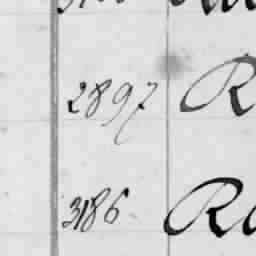 2897 R
3186 Ra